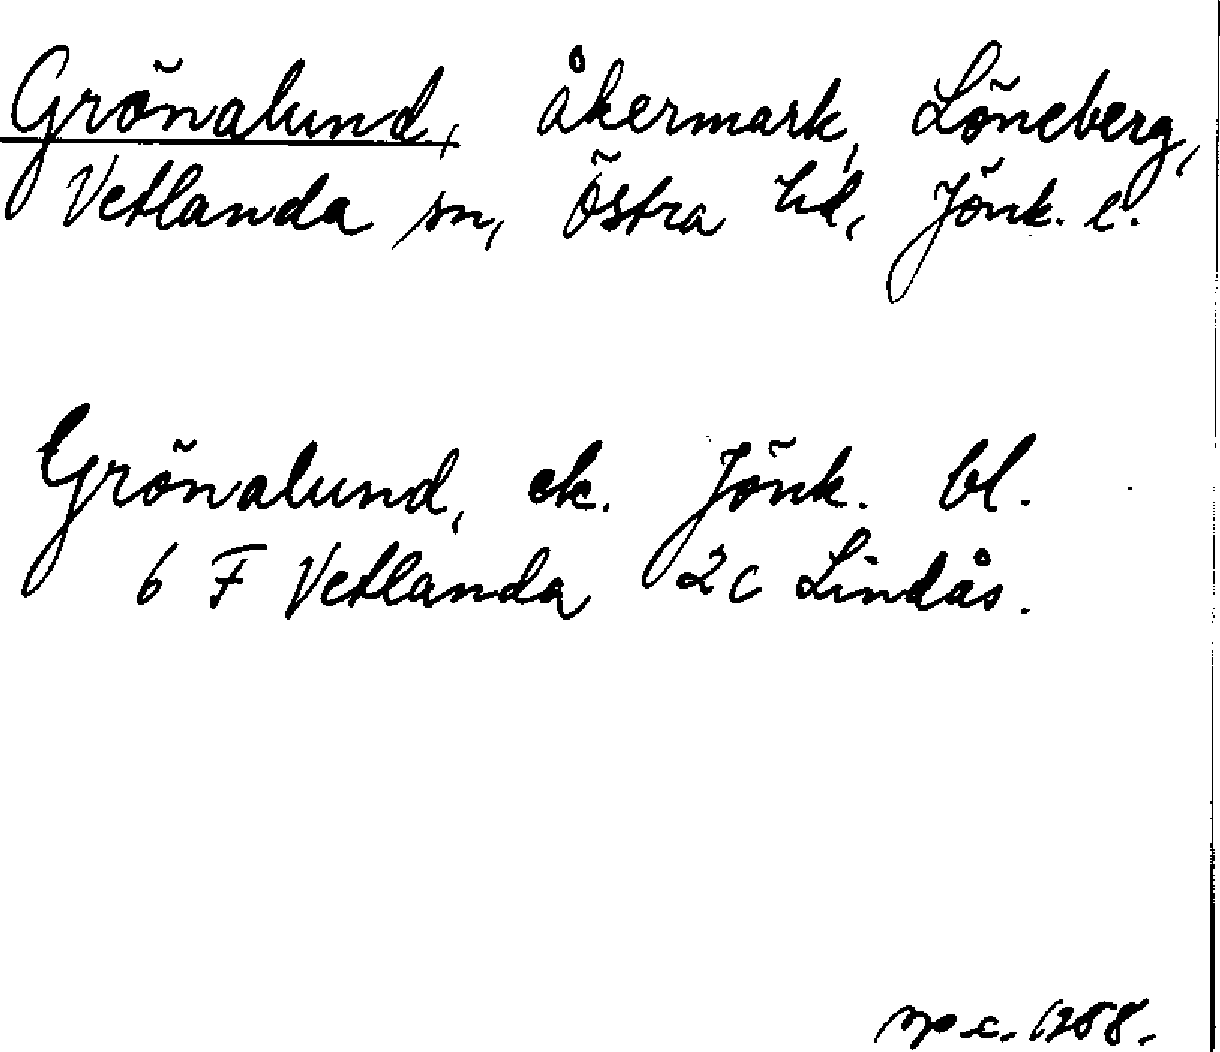 Grönalund, åkermark, Löneberg,
Vetlanda sn, Östra hd, Jönk. l.
Grönalund, ek. Jönk. bl.
6 F Vetlanda 2c Lindås.